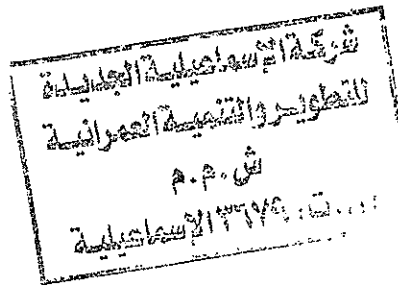 شركة الإسماعيلية الجديدة
للتطوير والتنمية العمرانية
ش.م.م
ت.: ٣٦٧٩ الإسماعيلية